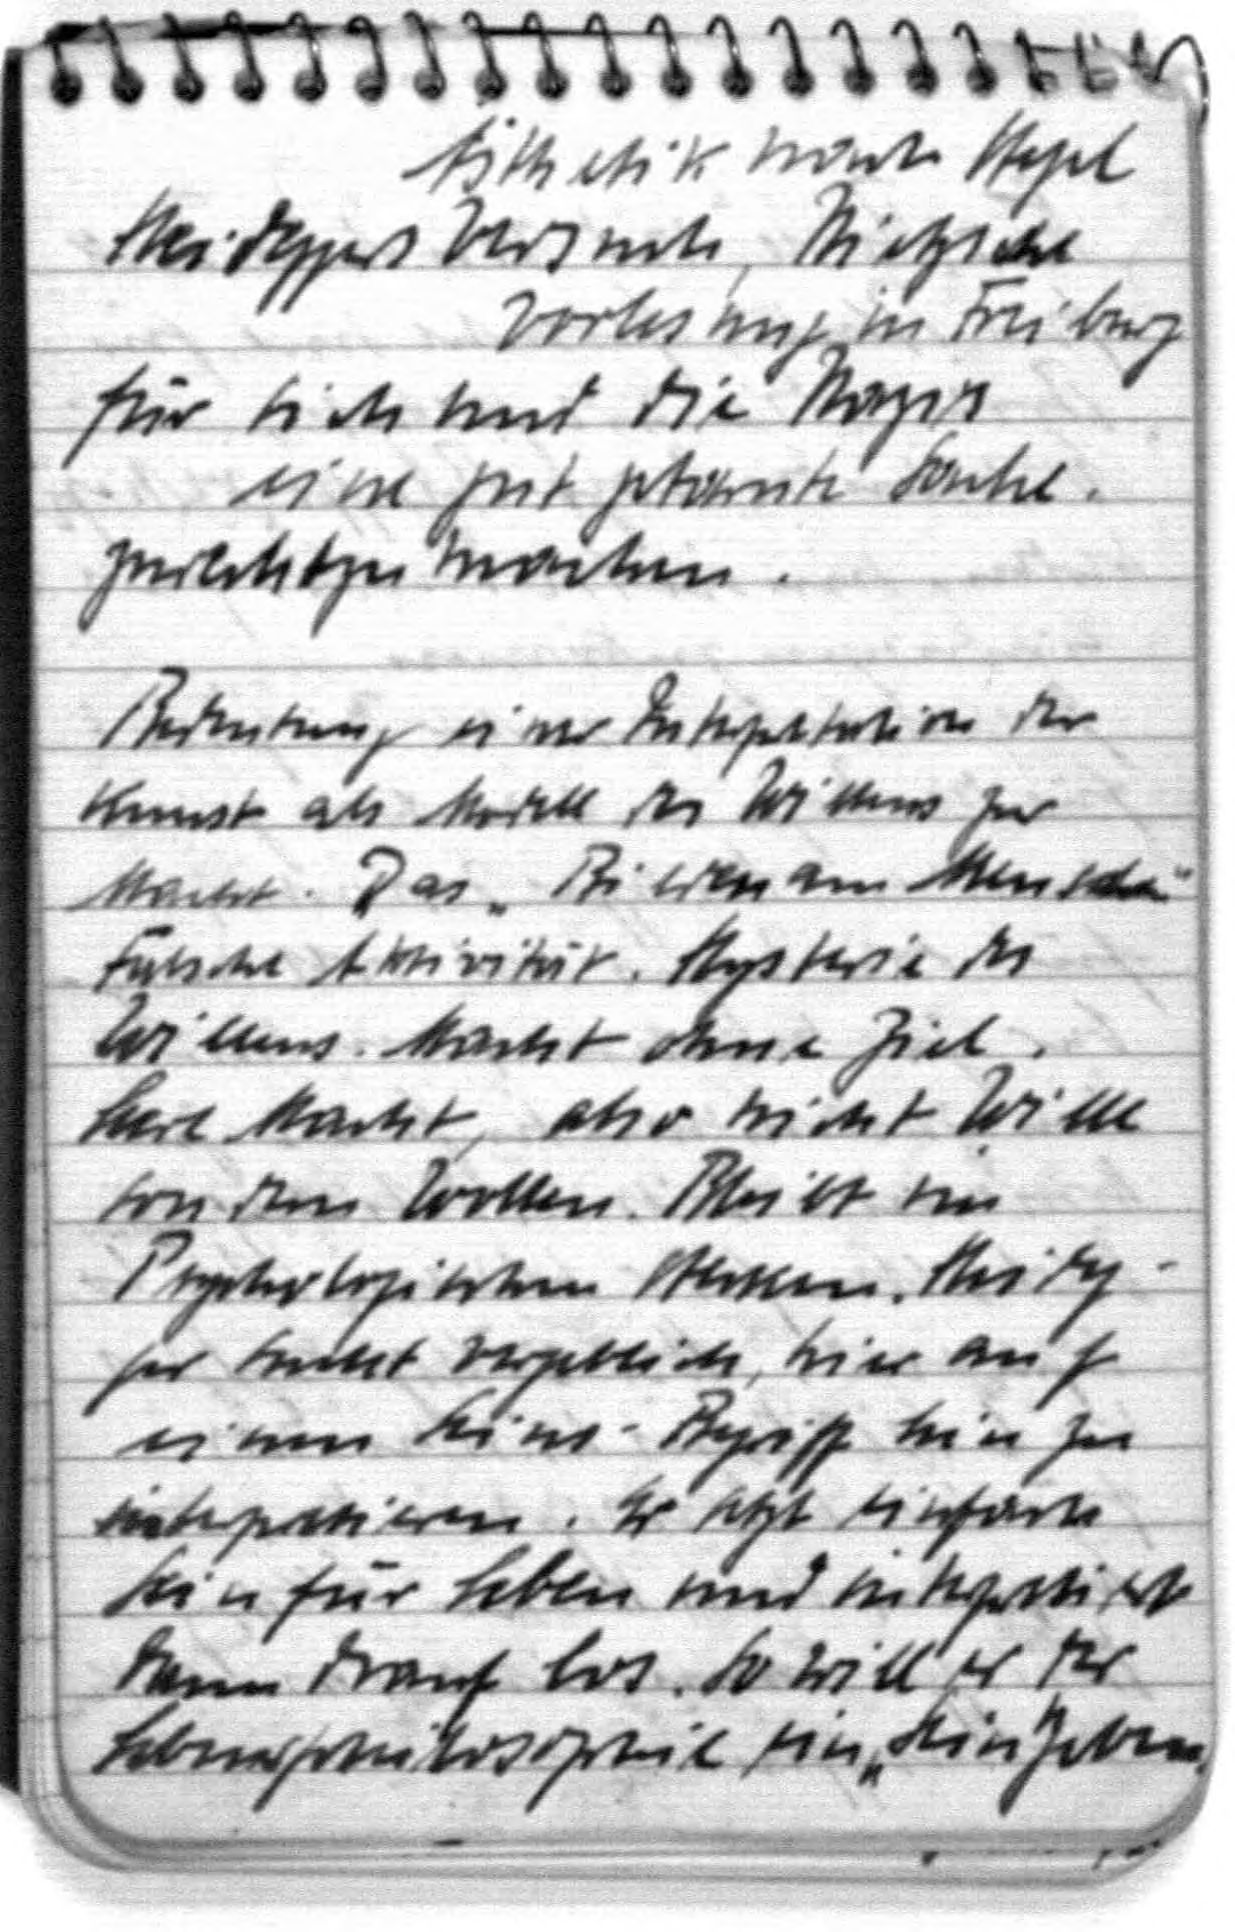 Ästhetik nach Hegel
Heideggers Versuch, Nietzsche
Vorlesung in Freiburg
für sich und die Nazis
eine gut getarnte Sache.
zurechtzumachen.
Bedeutung einer Interpretation der
Kunst als Modell des Willens zur
Macht. Das „Bilden am Menschen"
Falsche Aktivität. Hysterie des
Willens. Macht ohne Ziel.
Leere Macht, also nicht Wille
sondern Wollen. Bleibt im
Psychologischen stecken. Heideg-
ger sucht vergeblich, hier auf
einen Seins-Begriff hin zu
interpretieren. Er setzt einfach
Sein für Leben und interpretiert
dann drauf los. So will er der
Lebensphilosophie ein „Sein" geben.